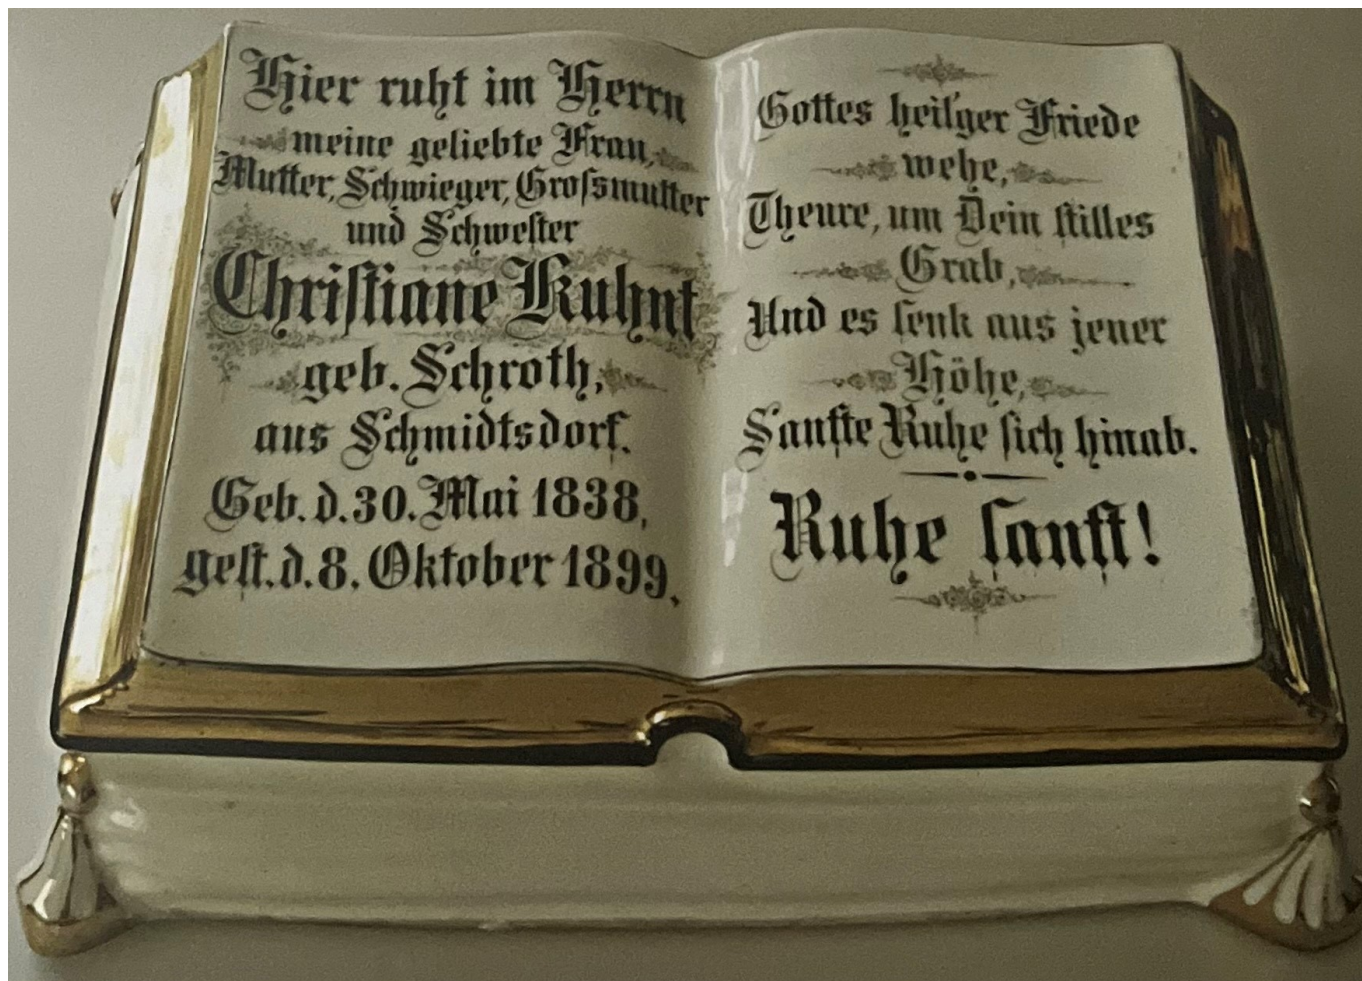 Hier ruht im Herrn
meine geliebte Frau,
Mutter, Schwieger, Groſsmutter
und Schweſter
Chriſtiane Kuhnt
geb. Schroth,
aus Schmidtsdorf.
Geb. d. 30. Mai 1838,
geſt. d. 8. Oktober 1899.
Gottes heil'ger Friede
wehe,
Theure, um Dein ſtilles
Grab,
Und es ſenk aus jener
Höhe,
Sanfte Ruhe ſich hinab.
Ruhe ſanft!